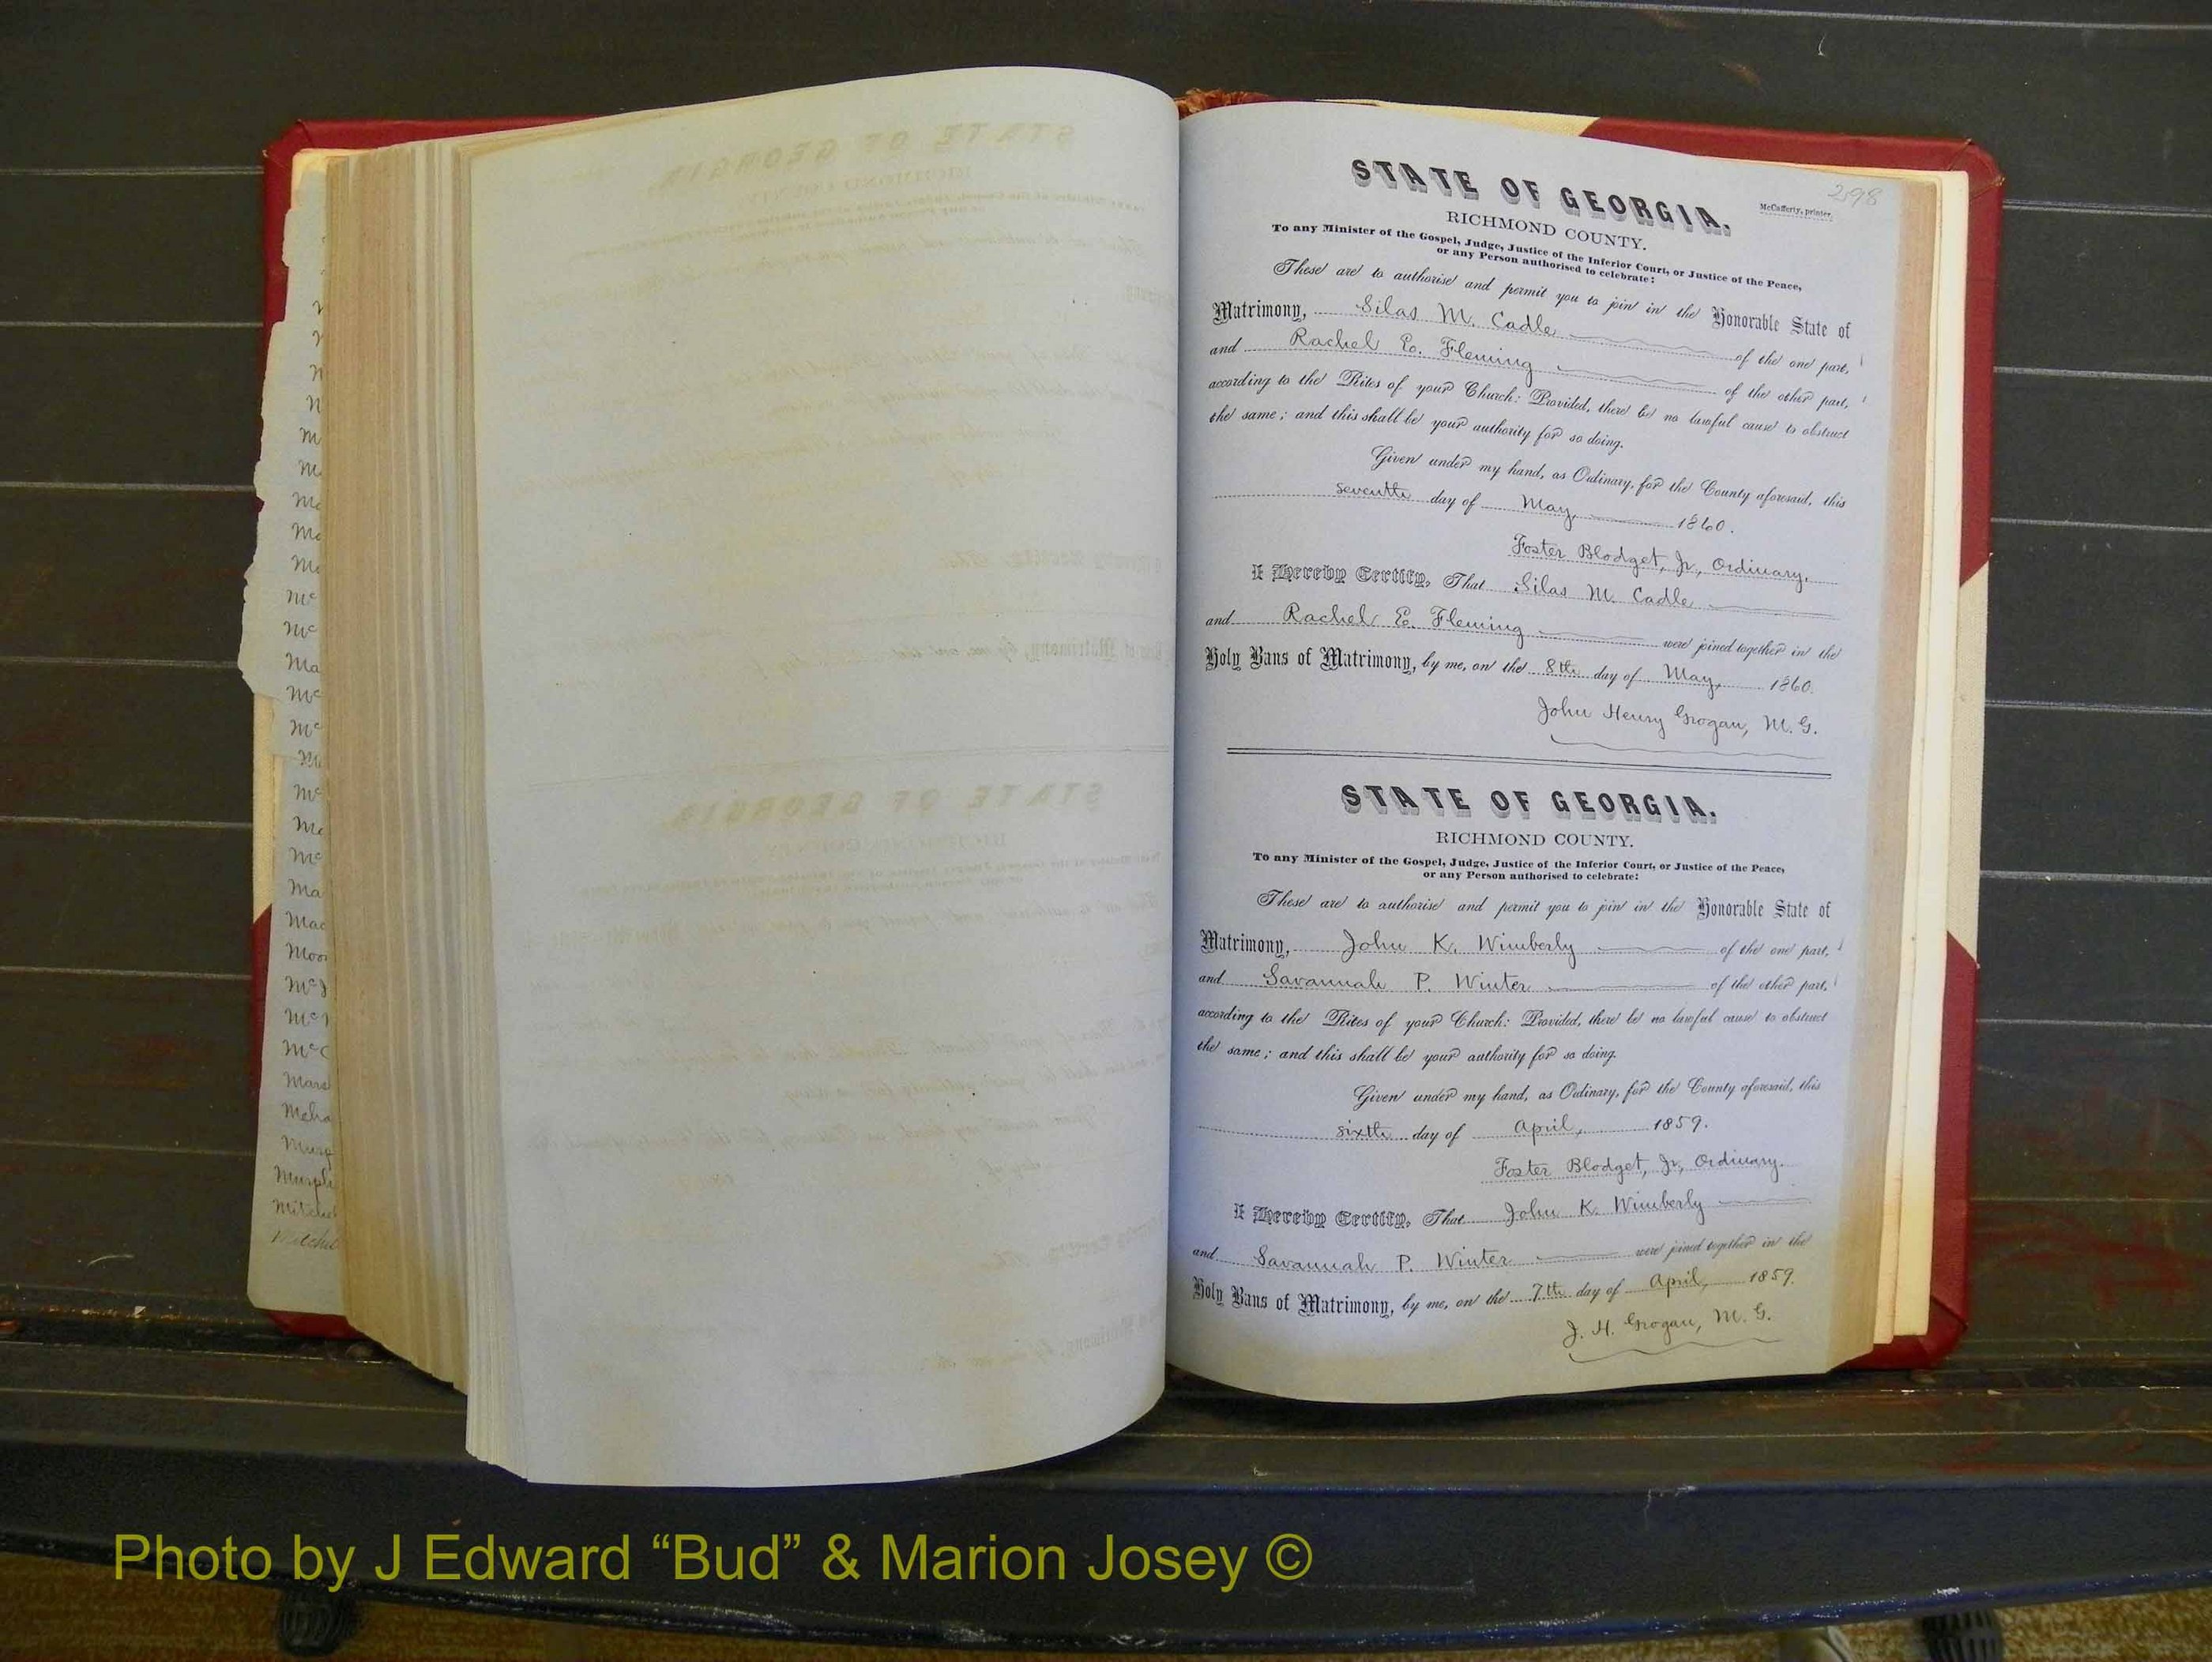 298
STATE OF GEORGIA.
McCafferty, printer.
RICHMOND COUNTY.
To any Minister of the Gospel, Judge, Justice of the Inferior Court, or Justice of the Peace,
or any Person authorised to celebrate:
These are to authorise and permit you to join in the Honorable State of
Matrimony, Silas M. Cadle of the one part,
and Rachel E. Fleming of the other part,
according to the Rites of your Church: Provided, there be no lawful cause to obstruct
the same; and this shall be your authority for so doing.
Given under my hand, as Ordinary, for the County aforesaid, this
seventh day of May 1860.
Foster Blodget, Jr., Ordinary.
I Hereby Certify, That Silas M. Cadle
and Rachel E. Fleming were joined together in the
Holy Bans of Matrimony, by me, on the 8th day of May, 1860.
John Henry Grogan, M. G.
STATE OF GEORGIA.
RICHMOND COUNTY.
To any Minister of the Gospel, Judge, Justice of the Inferior Court, or Justice of the Peace,
or any Person authorised to celebrate:
These are to authorise and permit you to join in the Honorable State of
Matrimony, John K. Wimberly of the one part,
and Savannah P. Winter of the other part,
according to the Rites of your Church: Provided, there be no lawful cause to obstruct
the same; and this shall be your authority for so doing.
Given under my hand, as Ordinary, for the County aforesaid, this
sixth day of April, 1859.
Foster Blodget, Jr., Ordinary.
I Hereby Certify, That John K. Wimberly
and Savannah P. Winter were joined together in the
Holy Bans of Matrimony, by me, on the 7th day of April, 1859.
J. H. Grogan, M. G.
Photo by J Edward “Bud” & Marion Josey ©